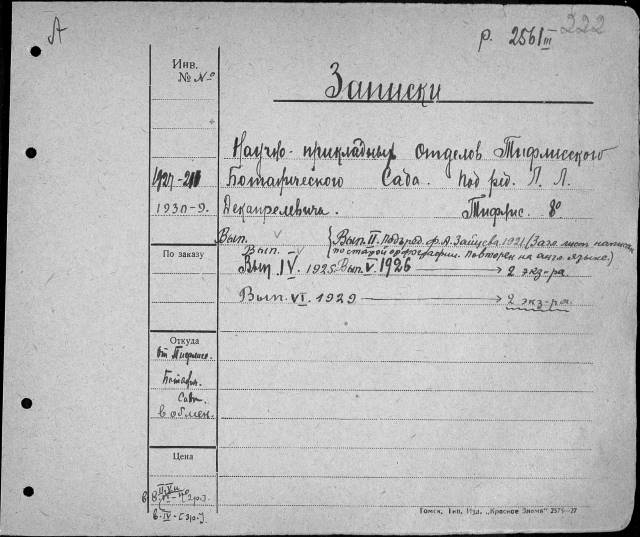 А
р. 2561 III 222
Инв.
№ №
Записки
Научно-прикладных Отделов Тифлисского
1927-211 Ботанического Сада. Под ред. Л. Л.
1930-9. Декапрелевича. Тифлис. 8°
Вып. {Вып. II. Под ред. Ф. А. Зайцева 1921. (Загл. лист написан
Вып. V по старой орфографии. Повторен на англ. языке.)
По заказу
Вып. IV. 1925 Вып. V. 1926 → 2 экз-ра
Вып. VI. 1929 → 2 экз-ра.
Откуда
От Тифлисс.
Ботанич.
Сада.
в обмен.
Цена
в. IV - [3р.]
Томск, Тип. Изд. „Красное Знамя" 2575—27